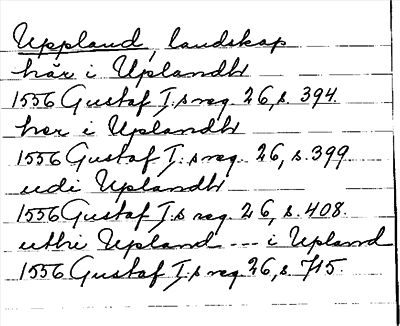 Uppland, landskap
här i Uplandh
1556 Gustaf I:s reg. 26, s. 394.
her i Uplandh
1556 Gustaf I:s reg. 26, s. 399
udi Uplandh
1556 Gustaf I:s reg. 26, s. 408.
uthi Upland --- i Upland
1556 Gustaf I:s reg 26, s. 715.